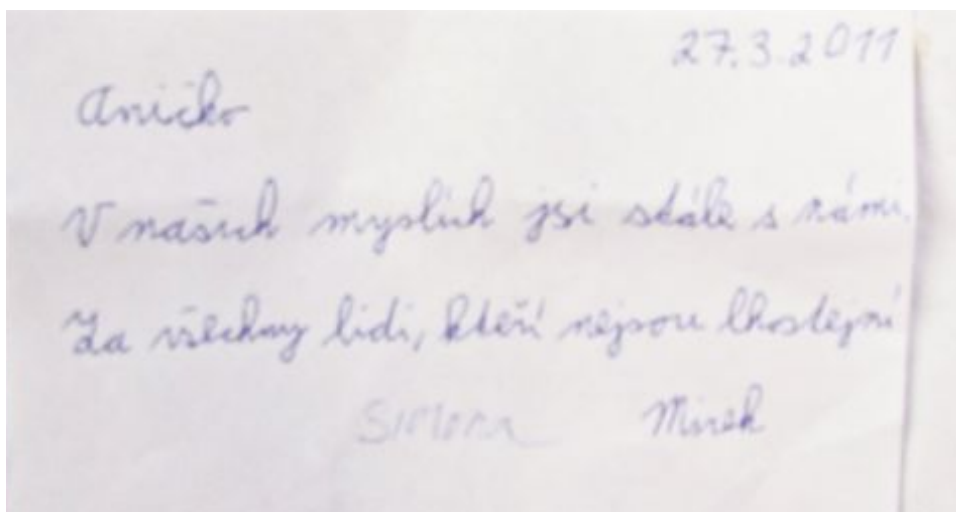 27.3.2011
Aničko
V našich myslích jsi stále s námi.
Za všechny lidi, kteří nejsou lhostejní
Simona Mirek